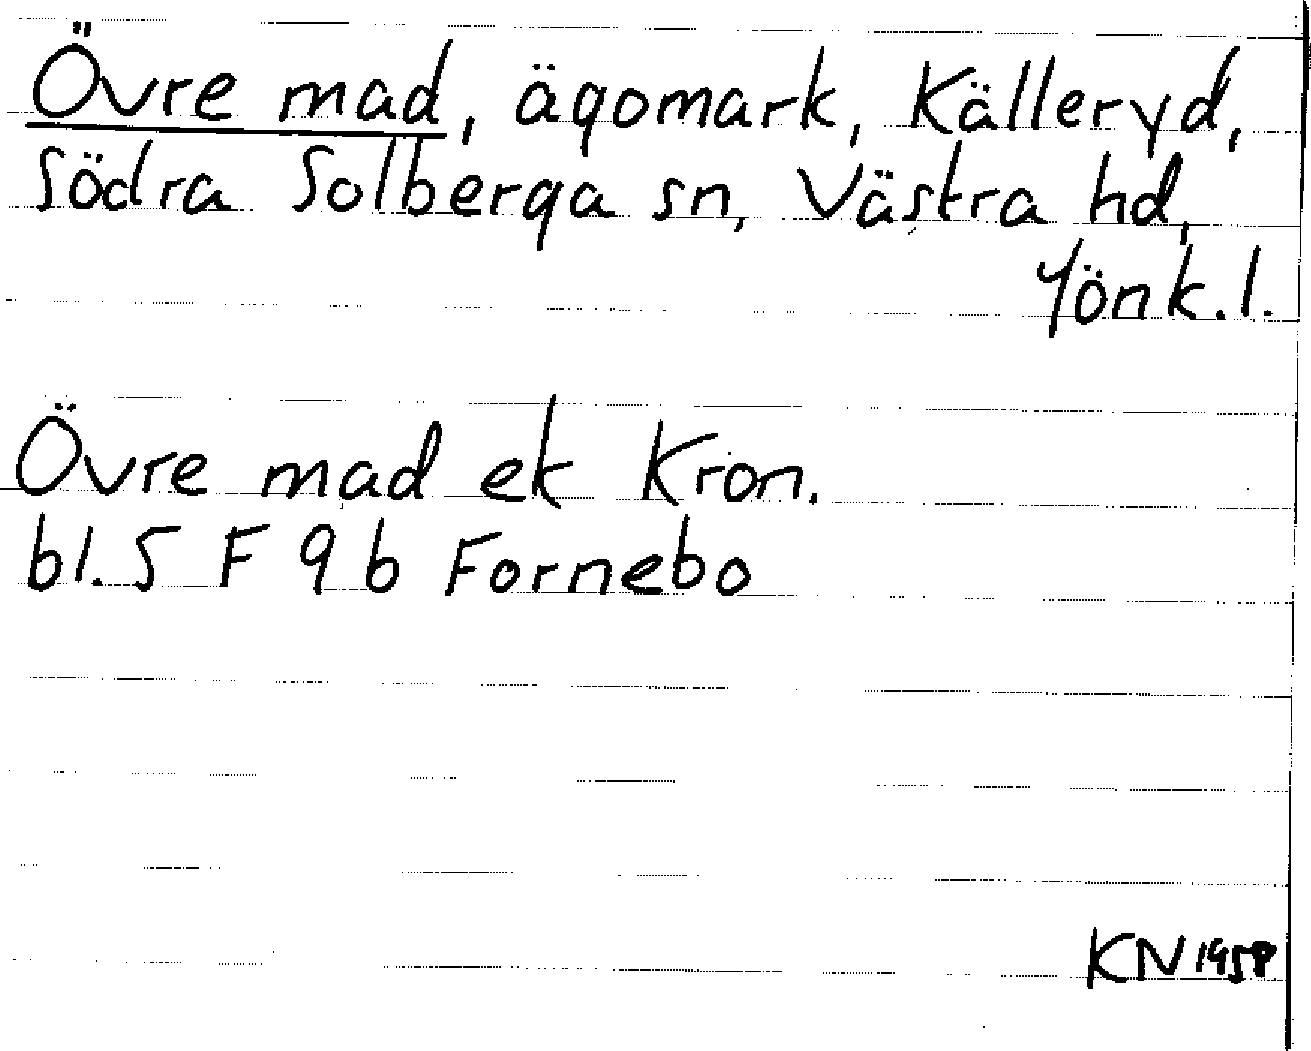 Övre mad, ägomark, Källeryd,
Södra Solberga sn, Västra hd,
Jönk.l.
Övre mad ek Kron.
bl. 5 F 9 b Fornebo
KN 1958